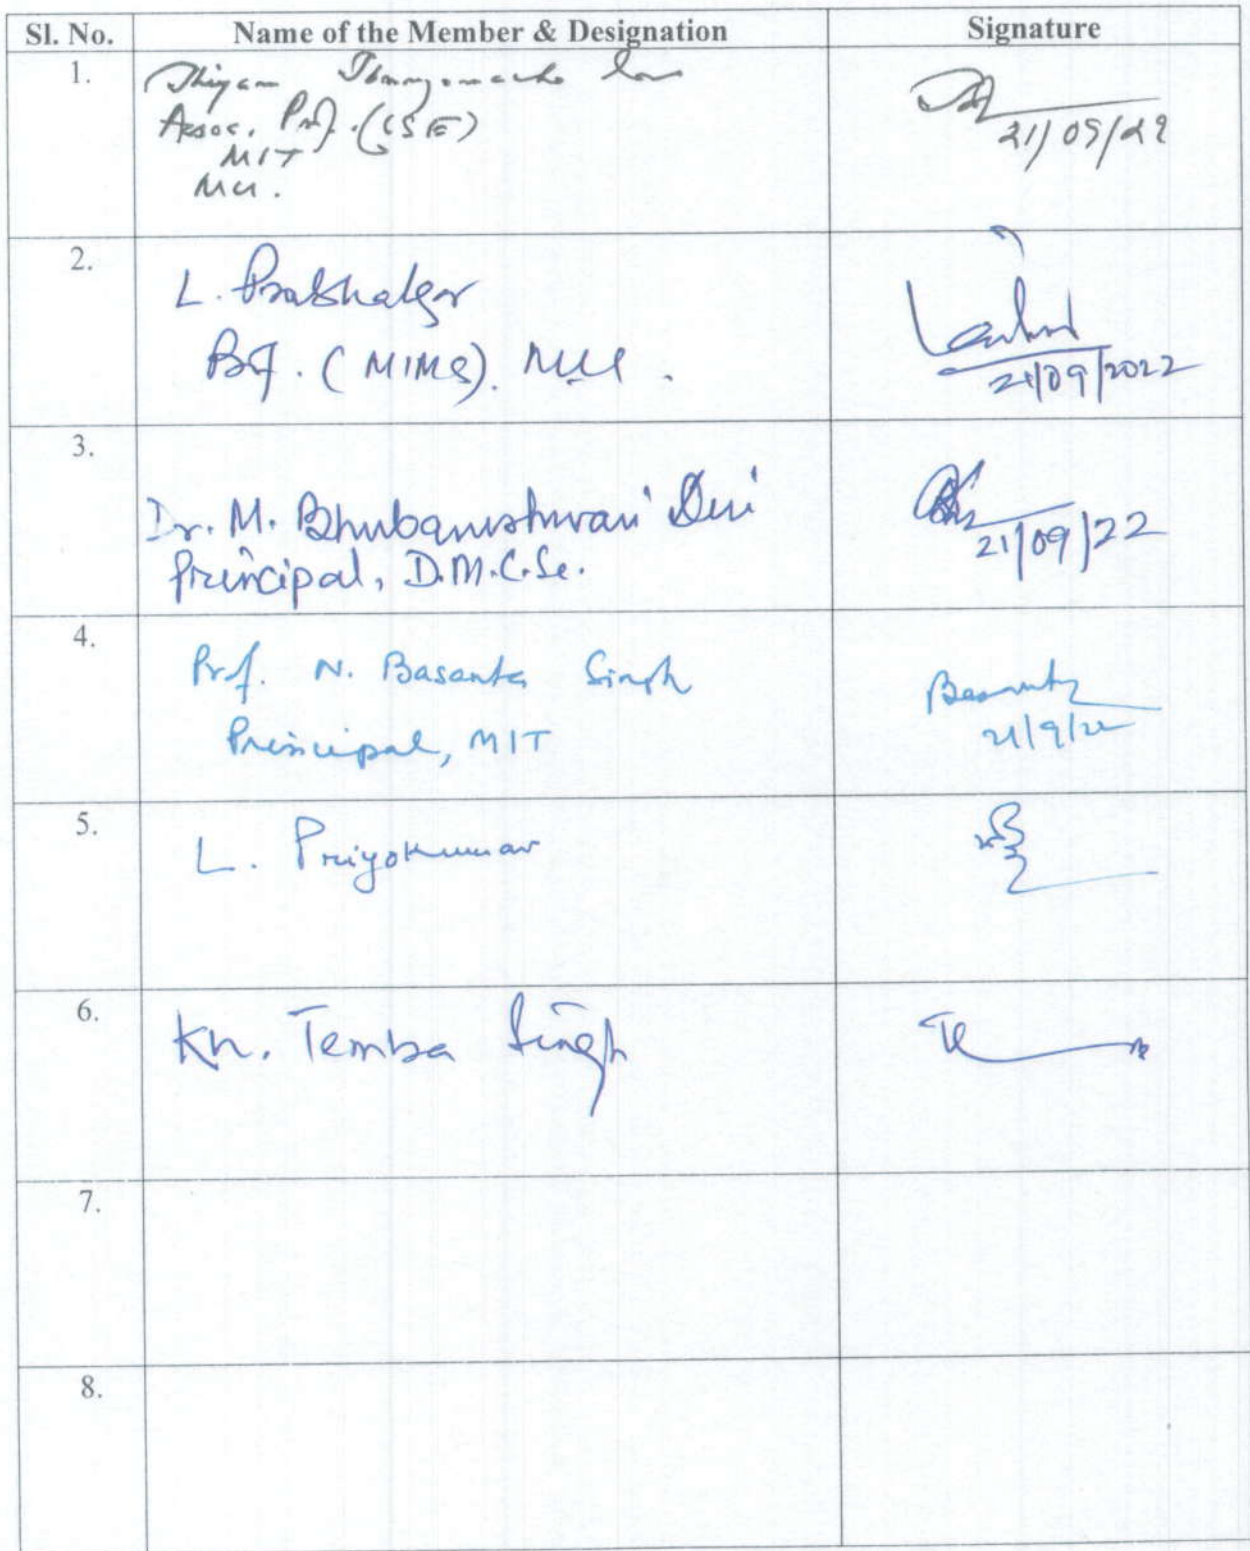 Sl. No. Name of the Member & Designation Signature
1. Thiyam
Assoc. Prof. (CSE)
MIT
MU.
21/09/22
2. L. Prabhakar
Prof. (MIMS). MU.
21/09/2022
3. Dr. M. Bhubaneshwari Devi
Principal, D.M.C.Sc.
21/09/22
4. Prof. N. Basanta Singh
Principal, MIT
Basanta
21/9/22
5. L. Priyokumar
6. Kh. Temba Singh
7.
8.